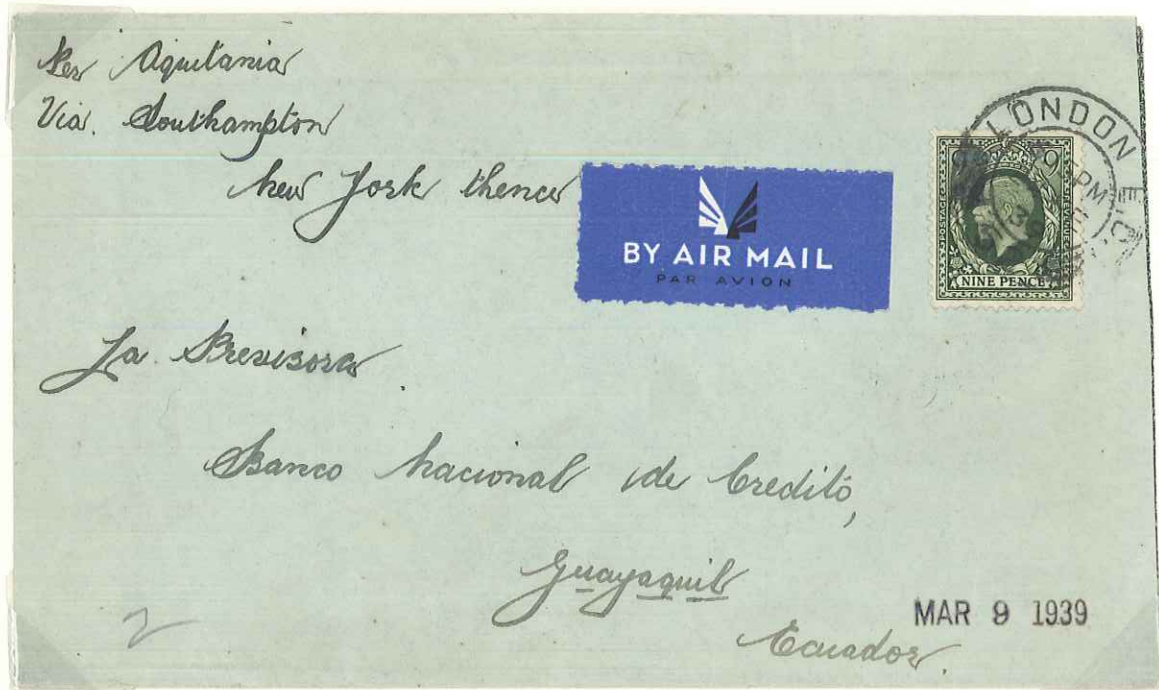 Per Aquitania
Via. Southampton
New York thence
BY AIR MAIL
PAR AVION
LONDON E.C.
PM
9 9
POSTAGE REVENUE
NINE PENCE
La Previsora
Banco Nacional de Credito,
Guayaquil
Ecuador.
MAR 9 1939
2